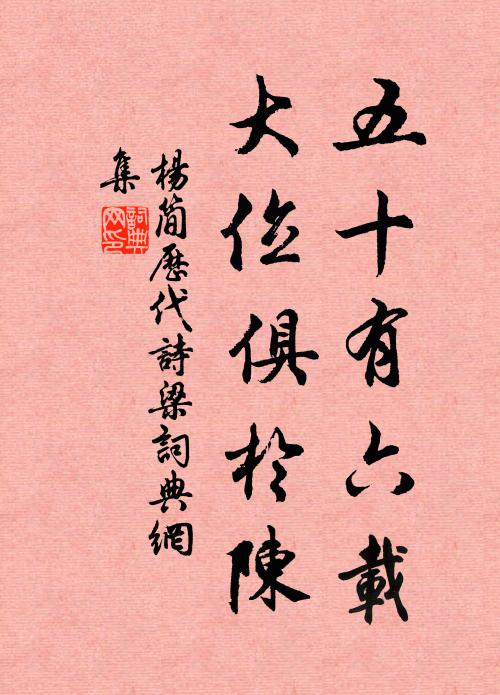 五十有六載
大位俱於陳
楊簡歷代詩梁詞典網
集
詞典
网印